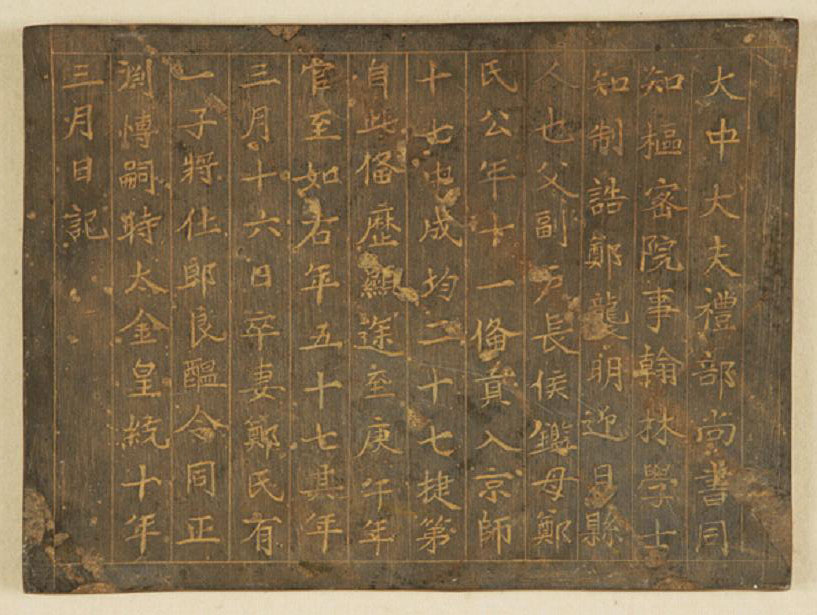 大中大夫禮部尚書同
知樞密院事翰林學士
知制誥鄭襲明迎日縣
人也父副戶長侯鑑母鄭
氏公年十一俻貢入京師
十七中成均二十七捷第
自此俻歷顯途至庚午年
官至如右年五十七其年
三月十六日卒妻鄭氏有
一子將仕郎良醞令同正
渕愽嗣時太金皇統十年
三月日記